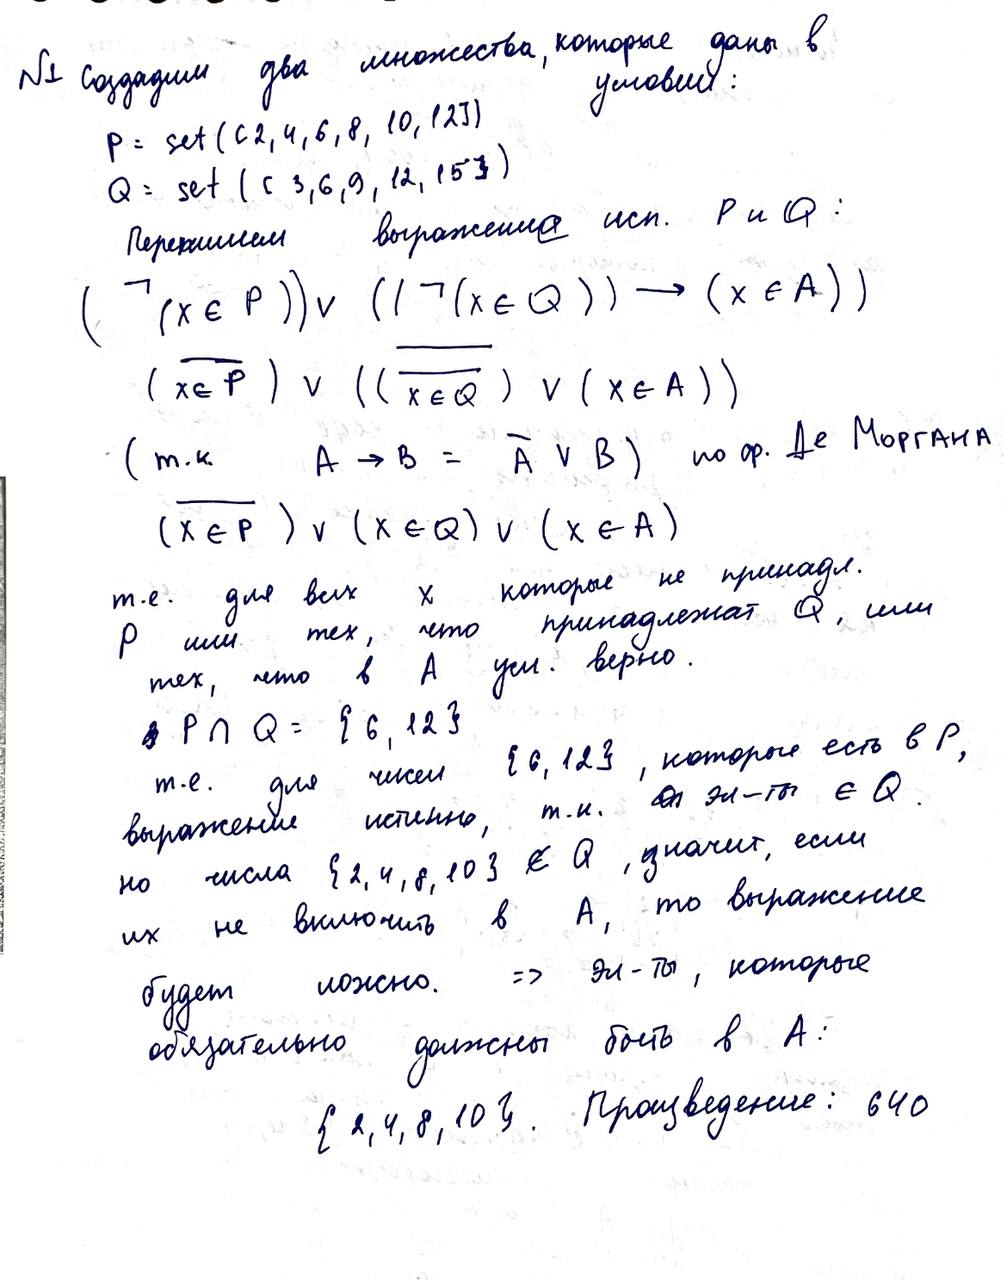 №1 Создадим два множества, которые даны в
условии:
P = set([2, 4, 6, 8, 10, 12])
Q = set([3, 6, 9, 12, 15])
Перепишем выражение исп. P и Q:
(¬(x ∈ P)) ∨ ((¬(x ∈ Q)) → (x ∈ A))
(x̅ ̅∈̅ ̅P̅) ∨ ((x̿ ̿∈̿ ̿Q̿) ∨ (x ∈ A))
(т.к. A → B = A̅ ∨ B) по ф. Де Моргана
(x̅ ̅∈̅ ̅P̅) ∨ (x ∈ Q) ∨ (x ∈ A)
т.е. для всех x которые не принадл.
P или тех, что принадлежат Q, или
тех, что в A усл. верно.
P ∩ Q = {6, 12}
т.е. для чисел {6, 12}, которые есть в P,
выражение истинно, т.к. эл-ты ∈ Q.
но числа {2, 4, 8, 10} ∉ Q, значит, если
их не включить в A, то выражение
будет ложно. => эл-ты, которые
обязательно должны быть в A:
{2, 4, 8, 10}. Произведение: 640